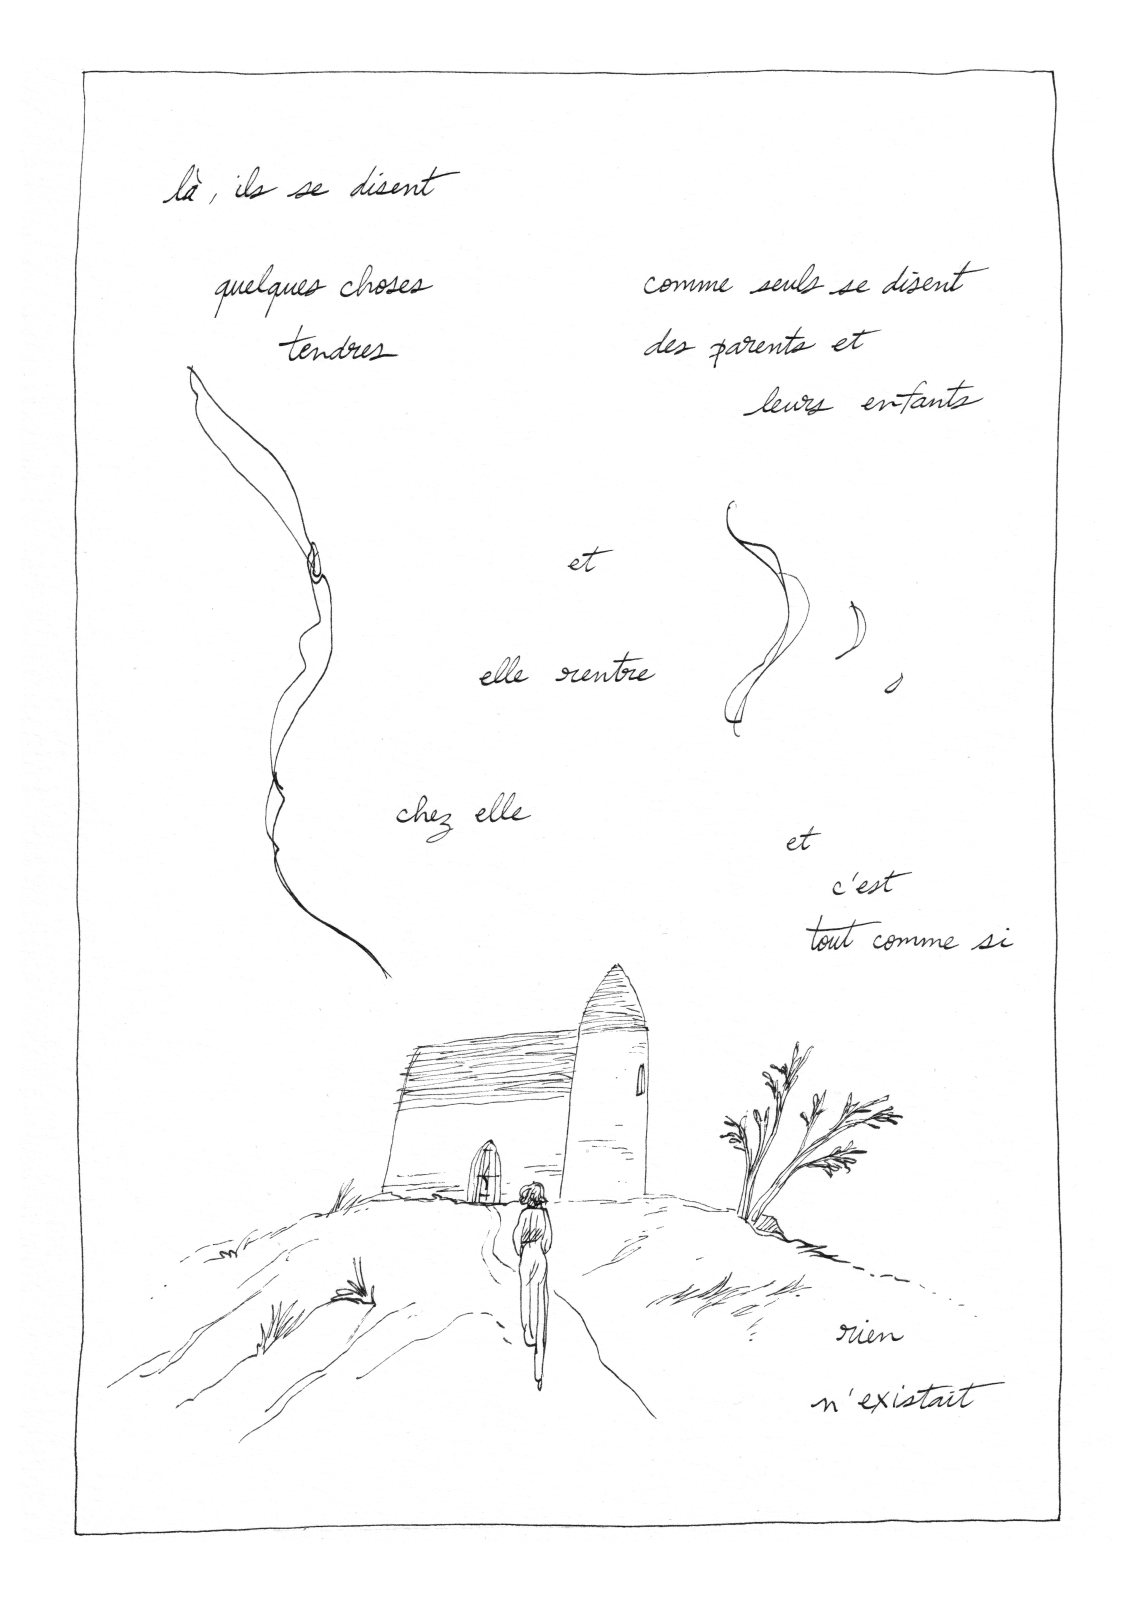 là, ils se disent
quelques choses
tendres
comme seuls se disent
des parents et
leurs enfants
et
elle rentre
chez elle
et
c'est
tout comme si
rien
n'existait